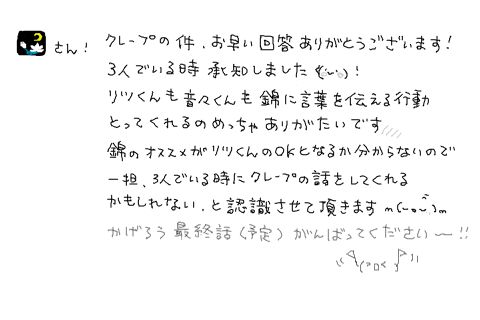 さん!
クレープの件、お早い回答ありがとうございます!
3人でいる時 承知しました(˘ω˘)!
リツくんも音々くんも錦に言葉を伝える行動
とってくれるのめっちゃありがたいです////
錦のオススメがリツくんのOKとなるか分からないので
一担、3人でいる時にクレープの話をしてくれる
かもしれない、と認識させて頂きます m(_ _)m
かげろう最終話(予定)がんばってください〜!!